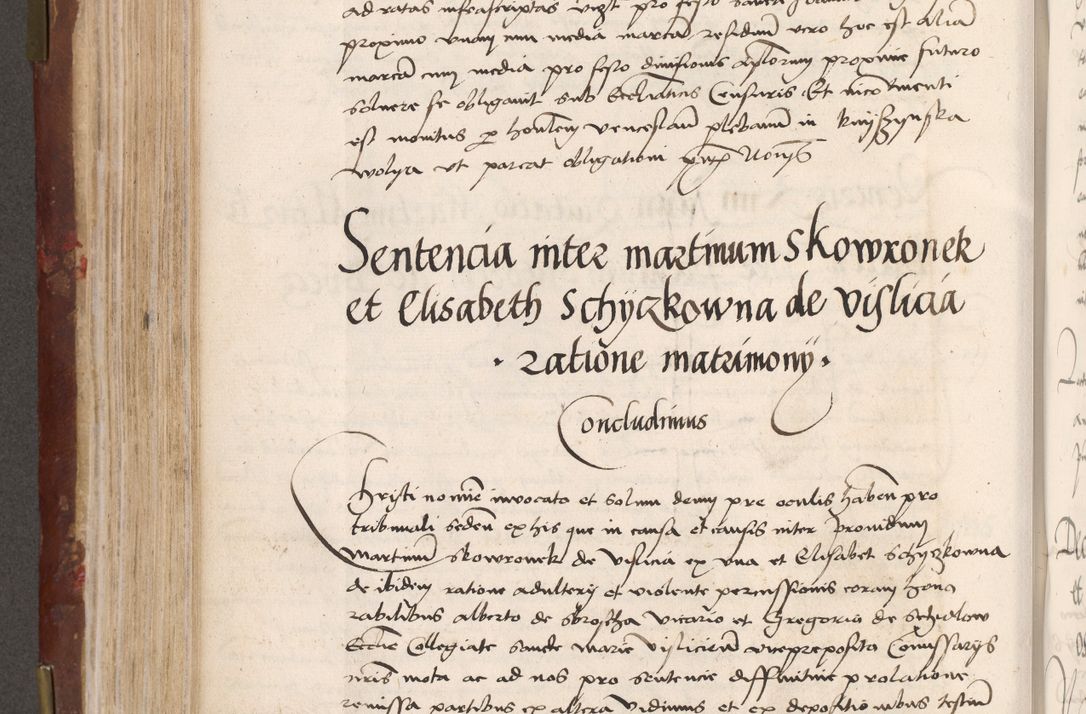 ad ratas infrascriptas vizt pro festo
proximo unam cum media marcam residuum vero hoc est aliam
marcam cum media pro festo divisionis aplorum proxime futuro
solvere se obligavit sub Ecclesiasticis Censuris Et nico
est monitus p honlem venceslaum plebanum in knyszynska
wolya ut pareat obligationi
Sentencia inter martinum Skowronek
et Elisabeth Schyczkowna de vislicia
· ratione matrimony ·
Concludimus
Christi nomine invocato et solum deum pre oculis haben pro
tribunali seden ex his que in causa et causis inter providum
Martinum Skowronek de vislicia ex una et Elisabet Schyczkowna
de ibidem ratione adultery et violente percussionis coram hono
rabilibus alberto de sbroscha vicario et Gregorio de
Ecclie Collegiate sancte marie visliciem vicepreposito Comissarys
nris mota ac ad nos pro sentencie diffinitive prolatione
remissa partibus ex altera vidimus et ex depositionibus testium